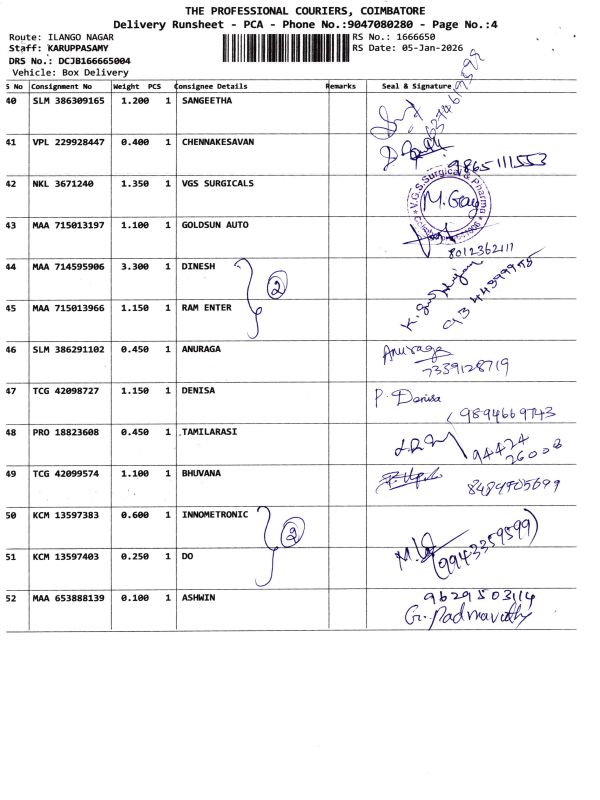 THE PROFESSIONAL COURIERS, COIMBATORE
Delivery Runsheet - PCA - Phone No.:9047080280 - Page No.:4
Route: ILANGO NAGAR RS No.: 1666650
Staff: KARUPPASAMY RS Date: 05-Jan-2026
DRS No.: DCJB166665004
Vehicle: Box Delivery
S No Consignment No Weight PCS Consignee Details Remarks Seal & Signature
40 SLM 386309165 1.200 1 SANGEETHA
41 VPL 229928447 0.400 1 CHENNAKESAVAN 9865111553
42 NKL 3671240 1.350 1 VGS SURGICALS V.G.S.Surgical & Pharma
43 MAA 715013197 1.100 1 GOLDSUN AUTO 8012362111
44 MAA 714595906 3.300 1 DINESH 2
45 MAA 715013966 1.150 1 RAM ENTER
46 SLM 386291102 0.450 1 ANURAGA Anuraga
7339128719
47 TCG 42098727 1.150 1 DENISA P. Denisa
9894669743
48 PRO 18823608 0.450 1 TAMILARASI 94424
26008
49 TCG 42099574 1.100 1 BHUVANA 8484905699
50 KCM 13597383 0.600 1 INNOMETRONIC 2
51 KCM 13597403 0.250 1 DO (9943359599)
52 MAA 653888139 0.100 1 ASHWIN 9629503114
G. Padmavathy